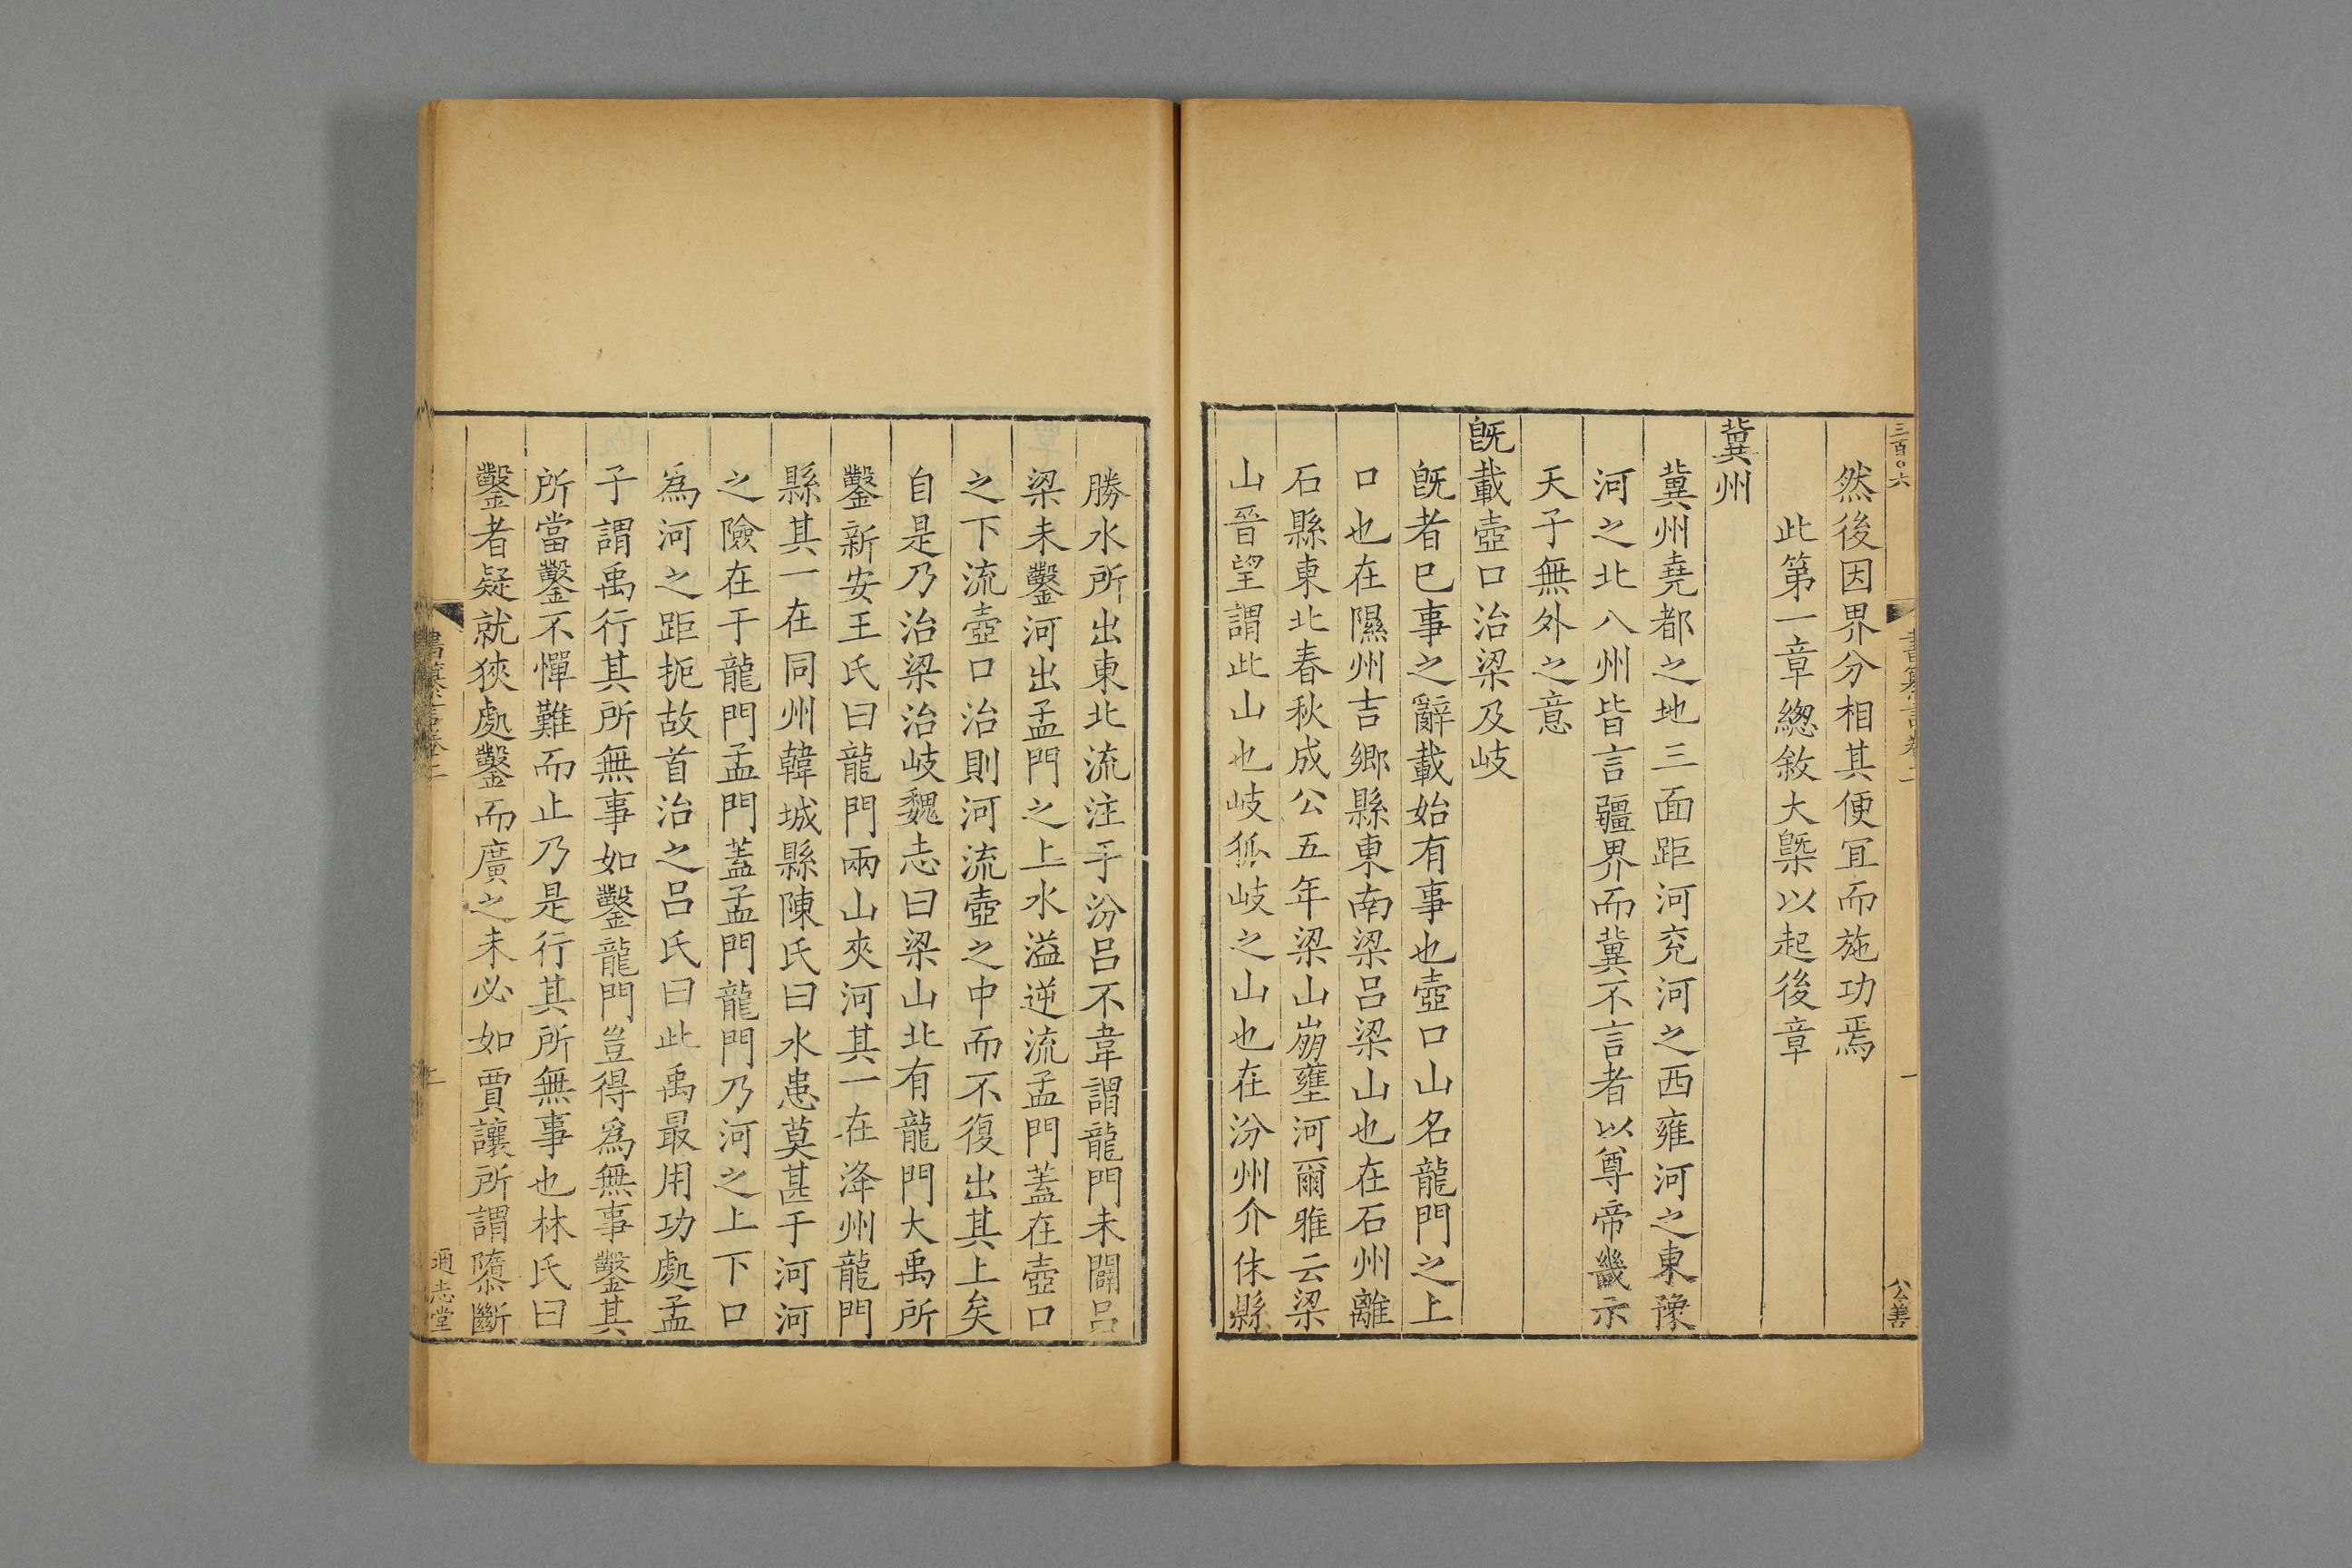 三百〇六
書纂言卷二
一
公善
然後因界分相其便宜而施功焉
此第一章緫敘大槩以起後章
冀州
冀州堯都之地三面距河兖河之西雍河之東豫
河之北八州皆言疆界而冀不言者以尊帝畿示
天子無外之意
旣載壺口治梁及岐
旣者巳事之辭載始有事也壺口山名龍門之上
口也在隰州吉鄉縣東南梁呂梁山也在石州離
石縣東北春秋成公五年梁山崩壅河爾雅云梁
山晉望謂此山也岐狐岐之山也在汾州介休縣
勝水所出東北流注于汾呂不韋謂龍門未闢呂
梁未鑿河出孟門之上水溢逆流孟門蓋在壺口
之下流壺口治則河流壺之中而不復出其上矣
自是乃治梁治岐魏志曰梁山北有龍門大禹所
鑿新安王氏曰龍門兩山夾河其一在泽州龍門
縣其一在同州韓城縣陳氏曰水患莫甚于河河
之險在于龍門孟門蓋孟門龍門乃河之上下口
為河之距扼故首治之呂氏曰此禹最用功處孟
子謂禹行其所無事如鑿龍門豈得為無事鑿其
所當鑿不憚難而止乃是行其所無事也林氏曰
鑿者疑就狹處鑿而廣之未必如賈讓所謂隳斷
書纂言卷二
二
通志堂